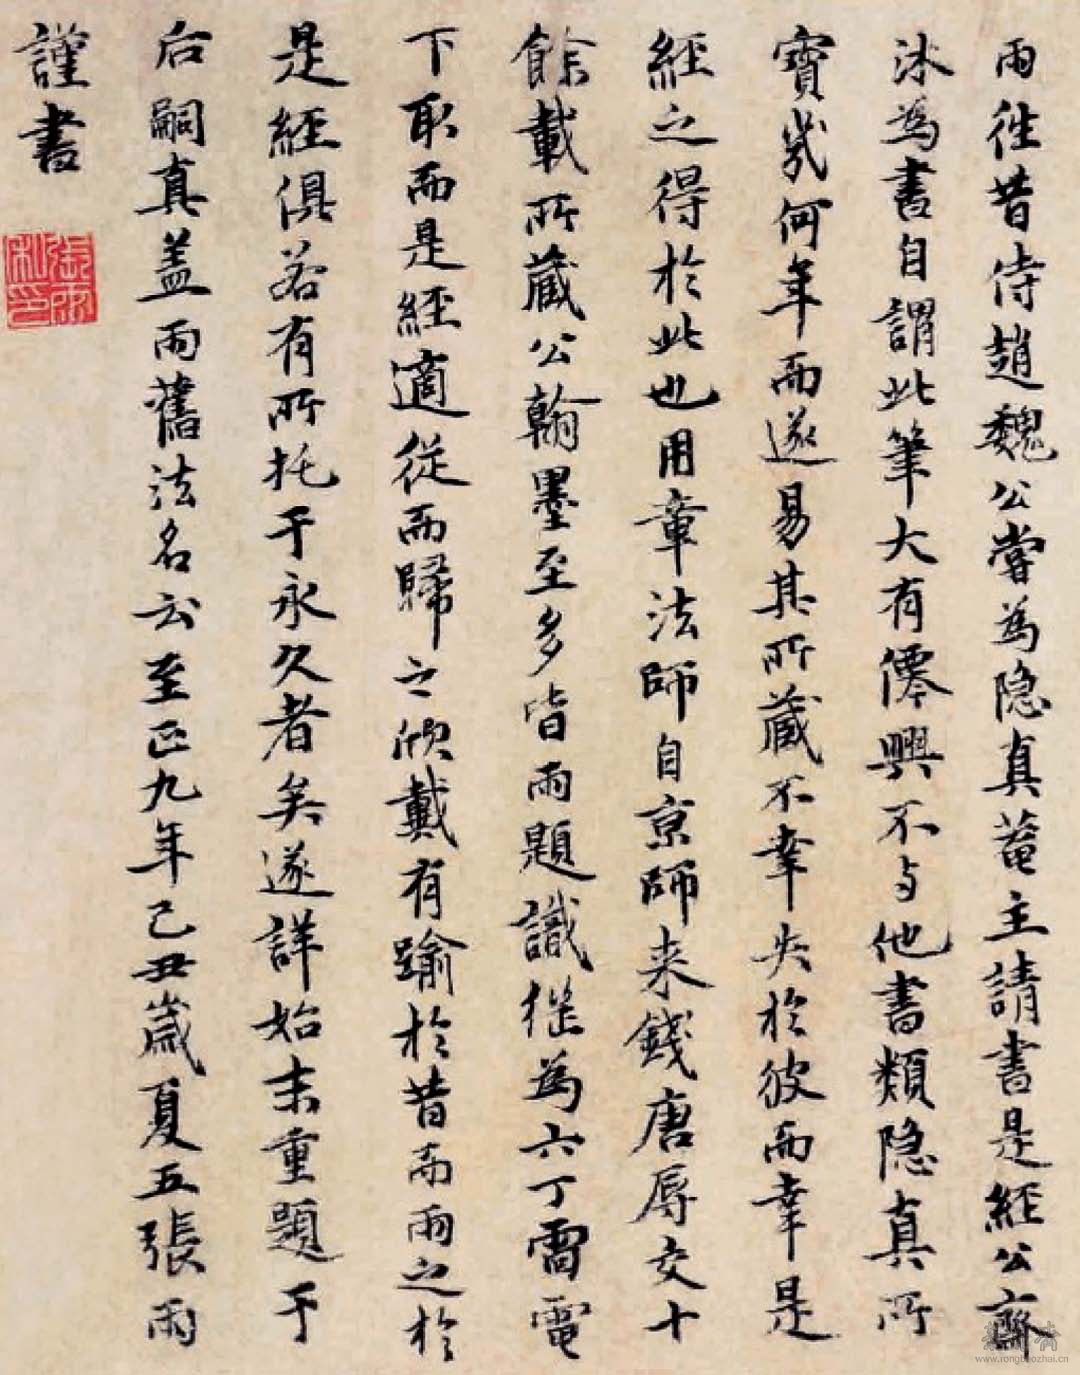 雨往昔侍趙魏公嘗為隐真菴主請書是經公齋
沐為書自謂此筆大有僊興不与他書類隐真所
寳幾何年而遂易其所藏不幸失於彼而幸是
經之得於此也用章法師自京師来錢唐辱交十
餘載所藏公翰墨至多皆雨題識後為六丁雷電
下取而是經適從而歸之欣戴有踰於昔而雨之於
是經俱若有所托于永久者矣遂詳始末重題于
后嗣真盖雨舊法名云至正九年己丑歲夏五張雨
謹書
張雨私印
www.rongbaozhai.cn